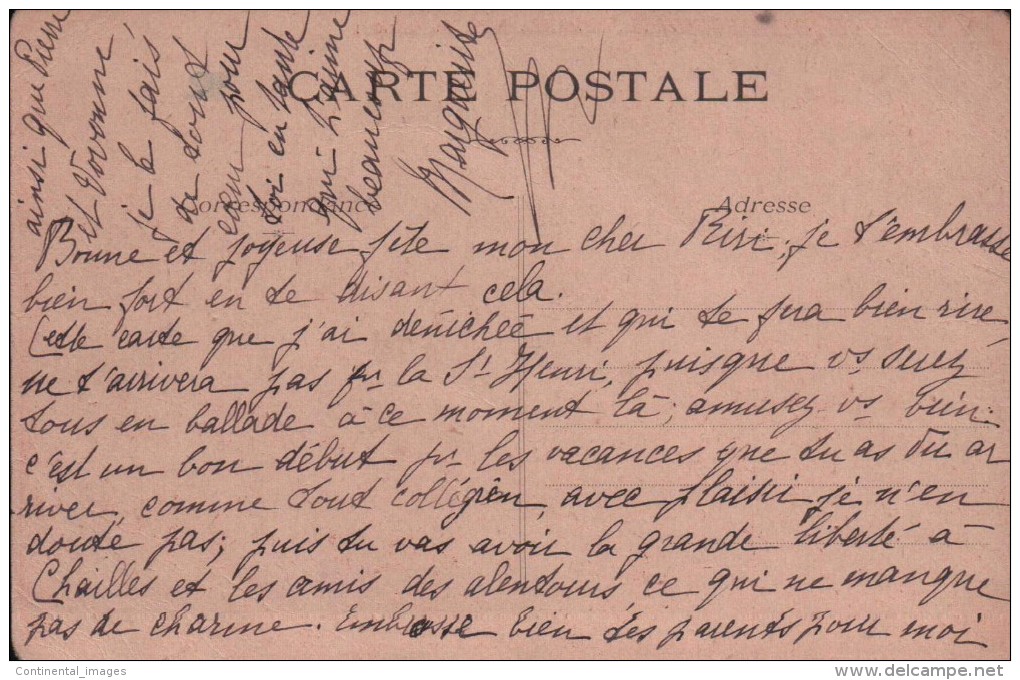 CARTE POSTALE
Correspondance
Adresse
Bonne et joyeuse fête mon cher Riri, je t'embrasse
bien fort en te disant cela.
Cette carte que j'ai dénichée et qui te fera bien rire,
ne t'arrivera pas pr la St Henri, puisque vs serez
tous en ballade à ce moment là; amusez vs bien.
c'est un bon début pr les vacances que tu as vu ar
river, comme tout collégien, avec plaisir je n'en
doute pas; puis tu vas avoir la grande liberté à
Chailles et les amis des alentours, ce qui ne manque
pas de charme. Embrasse bien tes parents pour moi
ainsi que Pierre
et Yvonne
je le fais
de tout
cœur pour
toi en tante
qui t'aime
beaucoup
Marguerite
Continental_images
www.delcampe.net